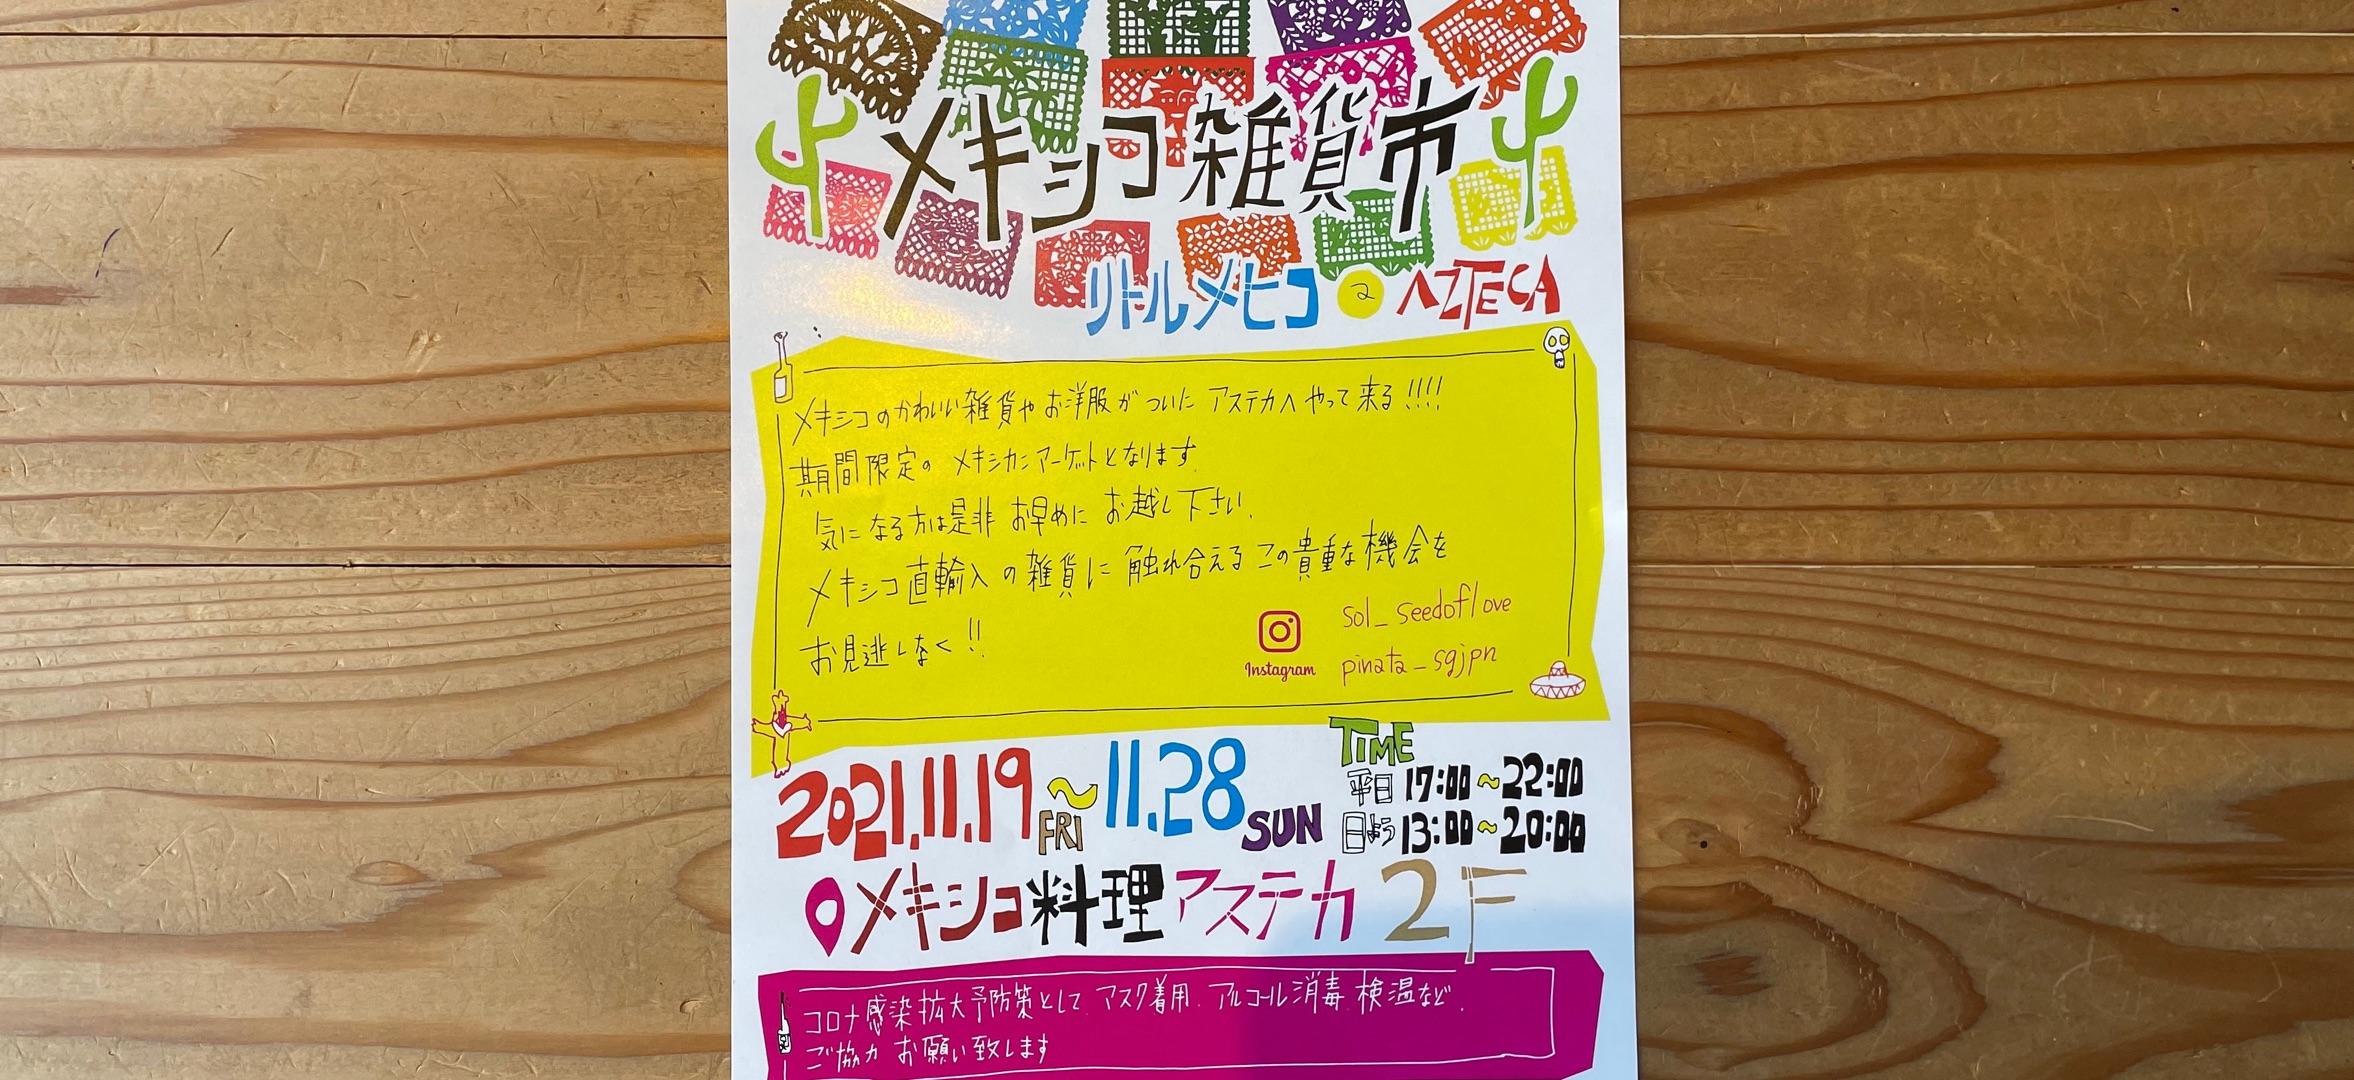 メキシコ雑貨市
リトルメヒコ a AZTECA
メキシコのかわいい雑貨やお洋服がついにアステカへやって来る!!!!
期間限定のメキシカンマーケットとなります
気になる方は是非お早めにお越し下さい.
メキシコ直輸入の雑貨に触れ合えるこの貴重な機会を
お見逃しなく!!
sol_seedoflove
Instagram pinata_sgjpn
2021.11.19 FRI ~ 11.28 SUN
TIME
平日 17:00~22:00
日よう 13:00~20:00
メキシコ料理アステカ 2F
コロナ感染拡大予防策として、マスク着用、アルコール消毒、検温など、
ご協力お願い致します